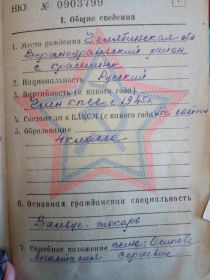 НЮ № 0903799
I. Общие сведения
1. Место рождения Челябинская обл
Верхнеуральский район
с Краснинск
2. Национальность Русский
3. Партийность (с какого года)
Член КПСС с 1945 г
4. Состоит ли в ВЛКСМ (с какого года) не состоит
5. Образование
4 класса
6. Основная гражданская специальность
токарь
7. Семейное положение жена: Осипова
Сергеевна